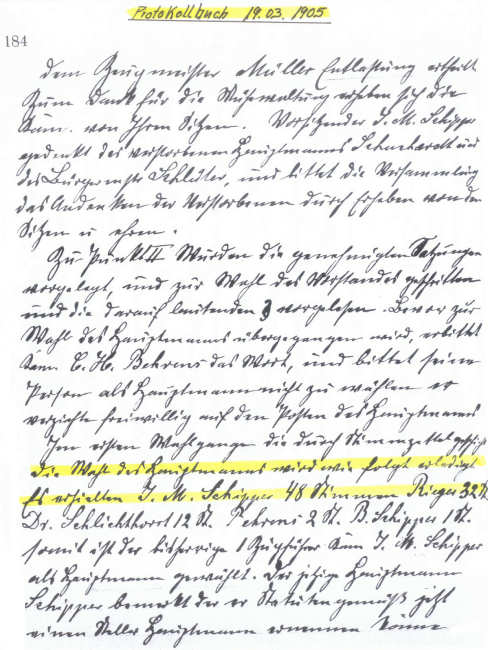 Protokollbuch 19.03.1905
184
dem Zeugmeister Müller Entlastung ertheilt
Zum Dank für die Mühewaltung erheben sich die
Kam. von Ihren Sitzen. Vorsitzender J. M. Schipper
gedenkt des verstorbenen Hauptmanns Schuchardt und
des Bürgermstr Schlüter, und bittet die Versammlung
das Andenken der Verstorbenen durch Erheben von den
Sitzen z ehren.
Zu Punkt II Wurden die genehmigten Satzungen
vorgelegt, und zur Wahl des Vorstandes geschritten
und die darauf lautenden § vorgelesen. Bevor zur
Wahl des Hauptmanns übergegangen wird, erbittet
Kam C. H. Behrens das Wort, und bittet seine
Person als Hauptmann nicht zu wählen er
verzichte freiwillig auf den Posten des Hauptmanns
Im ersten Wahlgange die durch Stimmzettel geschieht
die Wahl des Hauptmanns wird wie folgt erledigt
Es erhielten J. M. Schipper 48 Stimmen Rieger 32 St
Dr. Schlichthorst 12 St. Behrens 2 St. B. Schipper 1 St.
somit ist der bisherrige 1 Zugführer Kam J. M. Schipper
als Hauptmann gewählt. Der jetzige Hauptmann
Schipper bemerkt der er Statutengemäß jetzt
einen Stellv Hauptmann ernennen könne